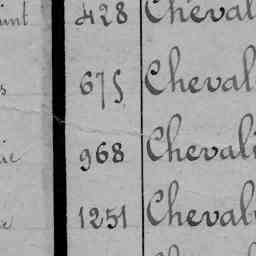 428 Cheval
675 Cheval
968 Chevali
1251 Cheval